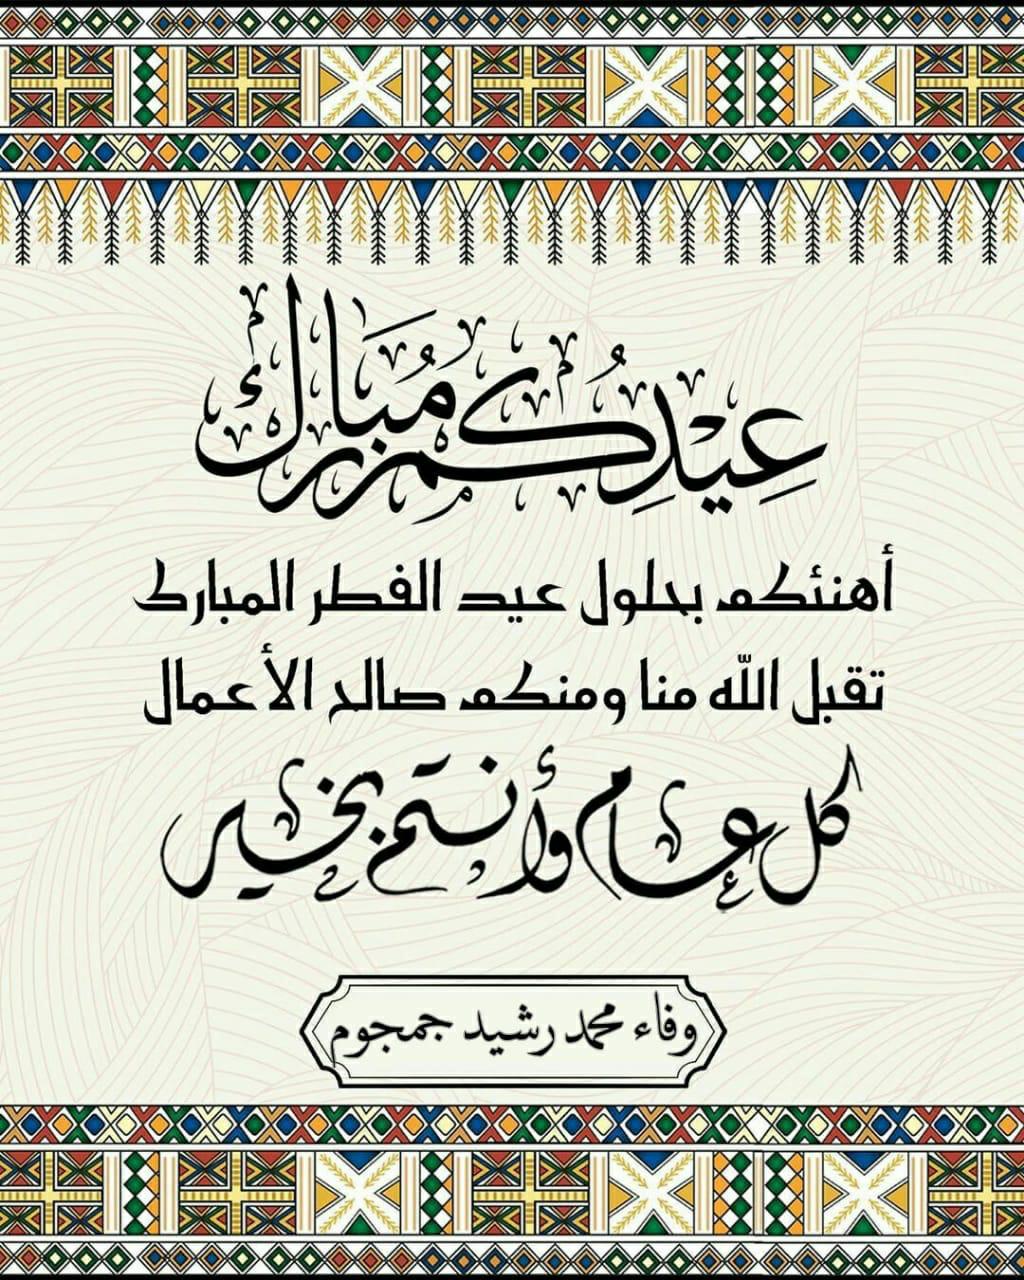 عِيْدِكُم مُبَارَك
أهنئكم بحلول عيد الفطر المبارك
تقبل الله منا ومنكم صالح الأعمال
كل عام وأنتم بخير
وفاء محمد رشيد جمجوم